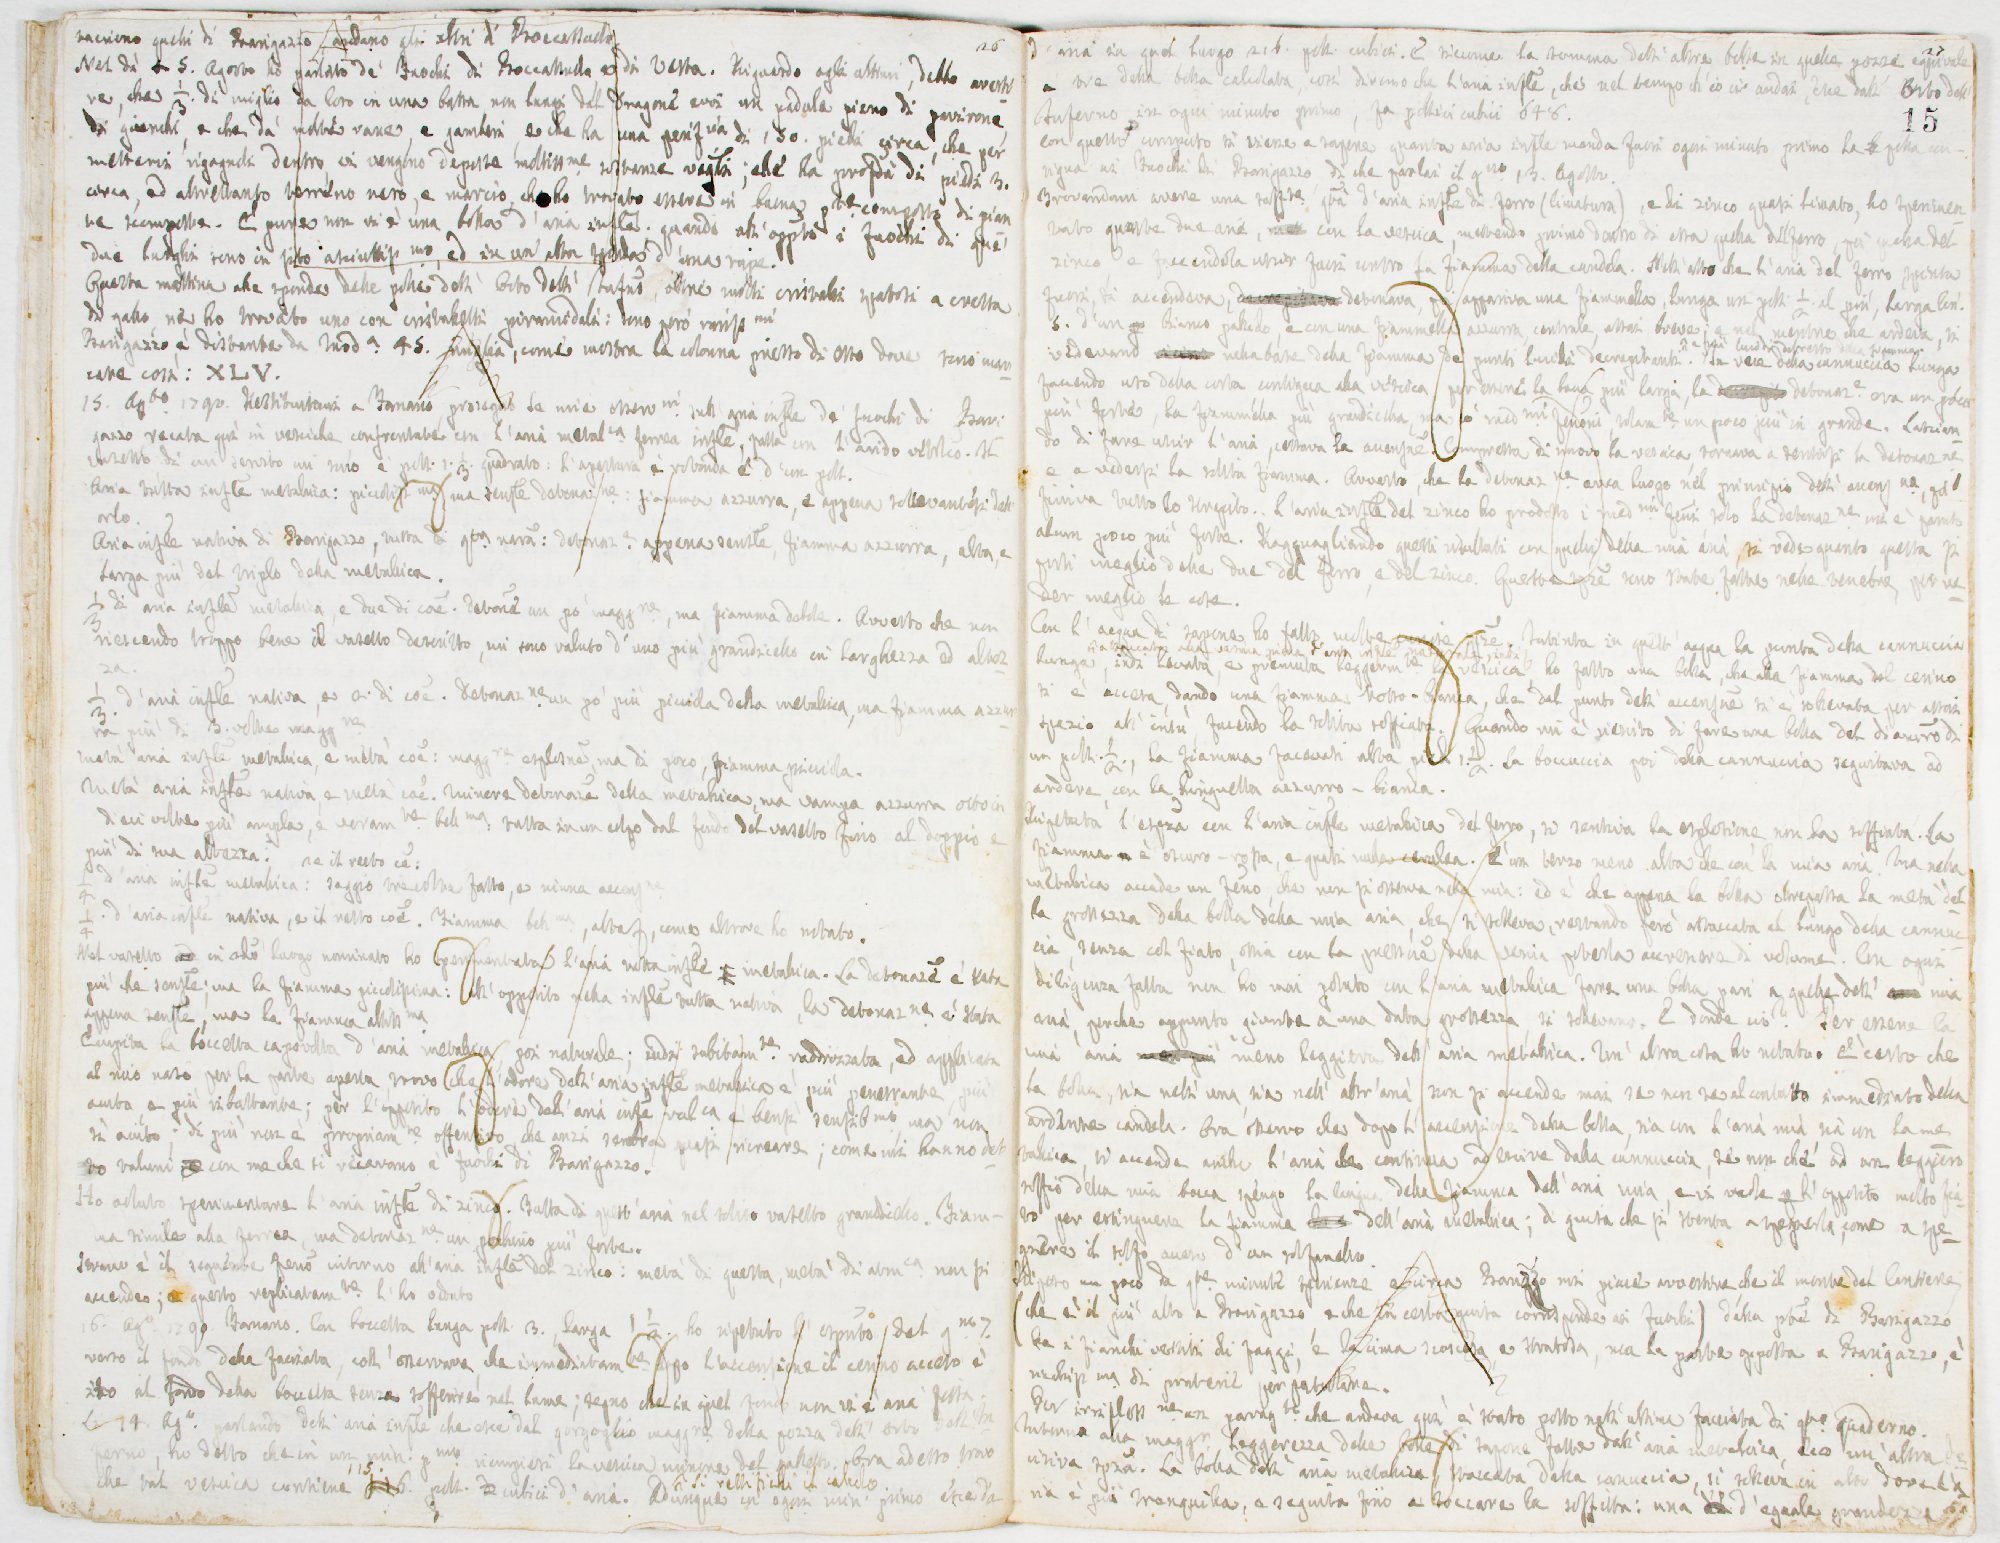 26
vacrono quelli di Barigazzo andano gli altri di Boccassuolo
Nel dì 5. Agosto ho parlato de' Fuochi di Boccassuolo e di Vetta. Riguardo agli ultimi, debbo averti
re, che 1/3. di miglio da loro in una bassa non lungi dal Dragone evvi un padule pieno di
di giunchi, e che dà molte rane, e e che ha una di 150. piedi circa, che per
rigagnoli dentro vi vengono deposte moltissme sostanze vegli; che ha profdà di piedi 3.
circa, ed altrettanto terreno nero, e marcio, che ho trovato essere in buona pte composto di pian
te scomposte. E pure non vi è una bolla d'aria infle. quando all'oppto i fuochi di que'
due luoghi sono in sito asciuttissmo, ed in un' alta d'una rupe.
Questa mattina alle sponde delle dell' Orto dell' Inferno, oltre molti cristalli spatosi a cresta
di gallo, ne ho trovato uno con cristalletti piramidali: sono però rarissmi
Barigazzo è distante da Moda. 45. miglia, come mostra la colonna presso di esso dove sono mar
cate così: XLV.
15. Agto 1790. Restituitomi a Fanano proseguo le mie osserni sull' aria infle de' fuochi di Bari
gazzo recata quì in vesciche confrontate con l'aria metalca ferrea infle, fatta con l'acido vitrlco. Il
vasetto di cui servito mi sono è poll. 1. 1/3. quadrato: l'apertura è rotonda è d'un poll.
Aria tutta infle metallica: piccolissma, ma sensle detonazne: fiamma azzurra, e appena sollevantesi dall'
orlo.
Aria infle nativa di Barigazzo, tutta di qsta narã: detonazne appena sensle, fiamma azzurra, alta, e
larga più del triplo della metallica.
1/3 di aria infle metallica, e due di coẽ. Detonẽ un po' maggre, ma fiamma debole. Avverto che non
riescendo troppo bene il vasetto descritto, mi sono valuto d'uno più grandicello in larghezza ed altez
za.
1/3. d'aria infle nativa, e 2. di coẽ. Detonazne un po' più piccola della metallica, ma fiamma azzur
ra più di 3. volte maggre
Metà aria infle metallica, e metà coẽ: maggre esplosne, ma di poco, fiamma piccola.
Metà aria infle nativa, e metà coẽ. Minore detonazẽ della metallica, ma vampa azzurra otto in
dieci volte più ampla, e veramte bellma: tutta in un colpo dal fondo del vasetto fino al doppio e
più di sua altezza. se il resto cẽ:
1/4 d'aria infle metallica: saggio tre volte fatto, e niuna accensne
1/4. d'aria infle nativa, e il resto coẽ. Fiamma bellma, alta, come altrove ho notato.
Nel vasetto in altro luogo nominato ho sperimentata l'aria tutta infle metallica. La detonazẽ è stata
più che sensle; ma la fiamma piccolissima: all' opposito nella infle tutta nativa, la detonazne è stata
appena sensle, ma la fiamma altissma
Empita la boccetta capovolta d'aria metallica, poi naturale; indi subitamte raddrizzata, ed applicata
al mio naso per la parte aperta trovo che l'odore dell' aria infle metallica è più penetrante, più
acuto e più ributtante; per l'opposito l'odore dell'aria infle è bensì sensibmo ma non
sì acuto; di più non è propriamte offensivo, che anzi sembra quasi ricreare; come mi hanno det
to taluni con me che si recavano a' fuochi di Barigazzo.
Ho voluto sperimentare l'aria infle di zinco. Tutta di quest'aria nel solito vasetto grandicello. Fiam-
ma simile alla ferrea, ma detonazne un pochino più forte.
Strano è il seguente fenõ intorno all'aria infle del zinco: metà di questa, metà di atmca non si
accende; e questo replicatamte l'ho veduto
16. Ago. 1790. Fanano. Con boccetta lunga poll. 3., larga 1 1/2. ho ripetuto l' esputo del qno 7.
verso il fondo della facciata, coll'osservare che immediatamte dopo l'accensione il cerino acceso è
ito al fondo della boccetta senza soffrire nel lume; segno che in quel fondo non vi è aria fissa.
Li 14. Ago. parlando dell'aria infle che esce dal gorgoglio maggre della pozza dell' Orto dell' In
ferno, ho detto che in un min. pmo riempiesi la vescica minore del galletto. Ora adesso trovo
che tal vescica contiene 216. poll. cubici d'aria. Dunque in ogni min. primo esce da
si rettifichi il calcolo
27
15
d'aria in quel luogo 216. poll. cubici. E siccome la somma dell'altre bolle in quelle pozze equivale
a tre della bolla calcolata, così diremo che l'aria infle, che nel tempo ch'io ci andai, esce dall' Orto dell'
Inferno in ogni minuto primo, fa pollici cubici 648.
Con questo computo si viene a sapere quanta aria infle manda fuori ogni minuto primo la polla con-
tigua ai Fuochi di Barigazzo di che parlai il gno 13. Agosto.
Trovandomi avere una suffte qtà d'aria infle di ferro (limatura), e di zinco quasi limato, ho sperimen
tato queste due arie, con la vescica, mettendo prima dentro di essa quella del ferro, poi quella del
zinco e facendola uscir fuori contro la fiamma della candela. Nell'atto che l'aria del ferro spinta
fuori, si accendeva, detonava, poi appariva una fiammella, lunga un poll. 1/2. al più, larga lin.
5. d'un bianco pallido, e con una fiammella azzurra, centrale, assai breve; e nel mentre che ardeva, si
vedevano nella base della fiamma de' punti lucidi decrepitanti. In vece della cannuccia lunga
facendo uso della corta contigua alla vescica per essere la luce più larga, la detonazne era un poco
più forte, la fiammella più grandicella, ma co' medmi fenoni, solamte un poco più in grande. Lascian
do di fare uscir l'aria, cessava la accensne. Compressa di nuovo la vescica tornava a sentirsi la detonazne
e a vedersi la solita fiamma. Avverto, che la detonazne avea luogo nel principio dell'accensne, poi
finiva tutto lo strepito. L'aria infle del zinco ho prodotto i medmi fenni solo la detonazne mi è paruta
alcun poco più forte. Ragguagliando questi risultati con quelli della mia aria, si vede quanto questa si
presti meglio delle due del ferro, e del zinco. Queste spẽ sono state fatte nelle tenebre, per ve
der meglio le cose.
Con l'acqua di sapone ho fatto molte curiose spẽ. Intinta in quest'acqua la punta della cannuccia
lunga, indi levata, e premuta leggermte la vescica, ho fatto una bolla, che alla fiamma del cerino
si è accesa, dando una fiamma rosso-bianca, che dal punto dell'accensne si è sollevata per assai
spazio all'insù, facendo la solita soffiata. Quando mi è riescito di fare una bolla del diametro di
un poll. 1/2., la fiamma facevasi alta piedi 1 1/2. La boccuccia poi della cannuccia seguitava ad
ardere con la linguetta azzurro-bianca.
Ripetuta l'espza con l'aria infle metallica del ferro, si sentiva la esplosione, non la soffiata. La
fiamma è oscuro-rossa, e quasi nulla cerulea. E un terzo meno alta che con la mia aria. Ma nella
metallica accade un feno, che non si osserva nella mia: ed è che appena la bolla oltrepassa la metà del
la grossezza della bolla della mia aria, che si solleva, restando però attaccata al lungo della cannuc
cia, senza col fiato, ossia con la pressiõe della vescia poterla accrescere di volume. Con ogni
diligenza fatta non ho mai potuto con l'aria metallica fare una bolla pari a quelle dell' mia
aria, perchè appunto giunte a una data grossezza, si sollevano. E donde ciò? Per essere la
mia aria meno leggiera dell'aria metallica. Un'altra cosa ho notato. È certo che
la bolla, sia nell'una, sia nell'altr'aria non si accende mai se non se al contatto immediato della
ardente candela. Ora osservo che dopo l'accensione della bolla, sia con l'aria mia sia con la me
tallica, si accende anche l'aria che continua ad uscire dalla cannuccia, se non che ad un leggiero
soffio della mia bocca spengo la lingua della fiamma dell'aria mia, e vi vuole l'opposito molto fia
to per estinguere la fiamma dell'aria metallica; di guisa che si stenta a spegnerla, come a spe-
gnere il solfo acceso d'un solfanello.
Riposo un poco da qste minute sperienze e circa Barigazzo mi piace avvertire che il monte del Cantiere
(che è il più alto a Barigazzo e che in certa guisa corrisponde ai Fuochi) dalla pte di Barigazzo
ha i fianchi vestiti di faggi, e la cima scoscesa, e stratosa, ma la parte opposta a Barigazzo, è
ricchissma di praterie per pasturare.
Per irriflessne un paragfo che andava quì è stato posto nell'ultima facciata di qsto quaderno.
Intorno alla maggr leggerezza delle bolle di sapone fatte dall'aria metallica, ecco un' altra de
cisiva spza. La bolla dell'aria metallica, staccata dalla cannuccia, si solleva in alto dove l'a
ria è più tranquilla, e seguita fino a toccare la soffitta: una d'eguale grandezza